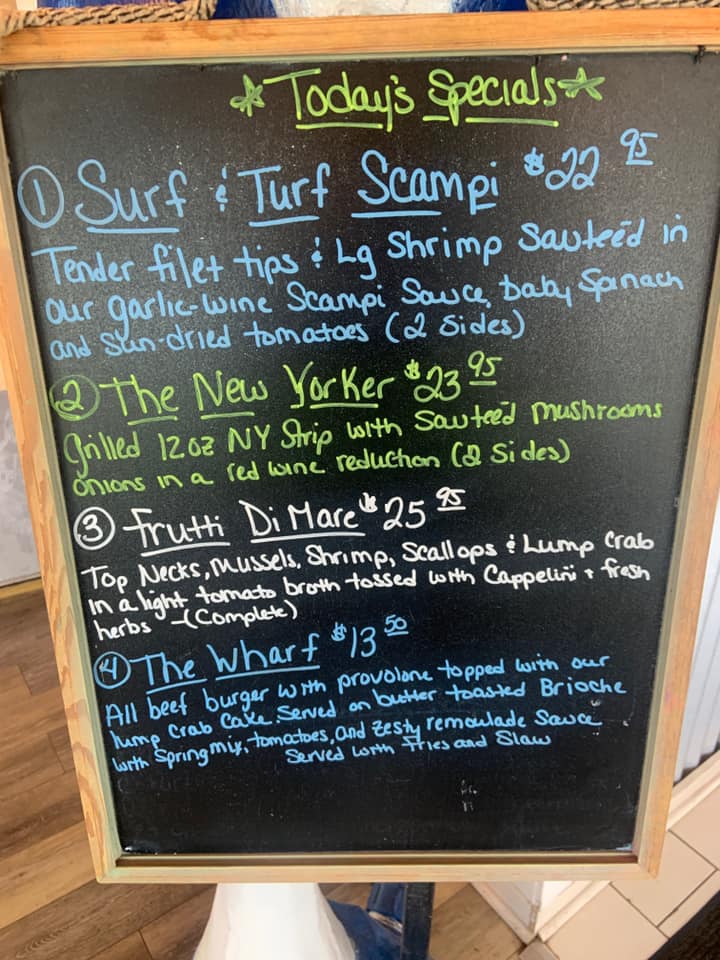 ☆ Today's Specials ☆
① Surf & Turf Scampi $22 95
Tender filet tips & Lg Shrimp Sauteéd in
our garlic-wine Scampi Sauce, baby Spinach
and Sun-dried tomatoes (2 Sides)
② The New Yorker $23 95
Grilled 12oz NY Strip with Sauteéd mushrooms
onions in a red wine reduction (2 Sides)
③ Frutti Di Mare $25 95
Top Necks, Mussels, Shrimp, Scallops & Lump Crab
in a light tomato broth tossed with Cappelini + fresh
herbs - (Complete)
④ The Wharf $13 50
All beef burger with provolone topped with our
lump Crab Cake. Served on butter toasted Brioche
with Spring mix, tomatoes, and zesty remoulade Sauce
Served with Fries and Slaw